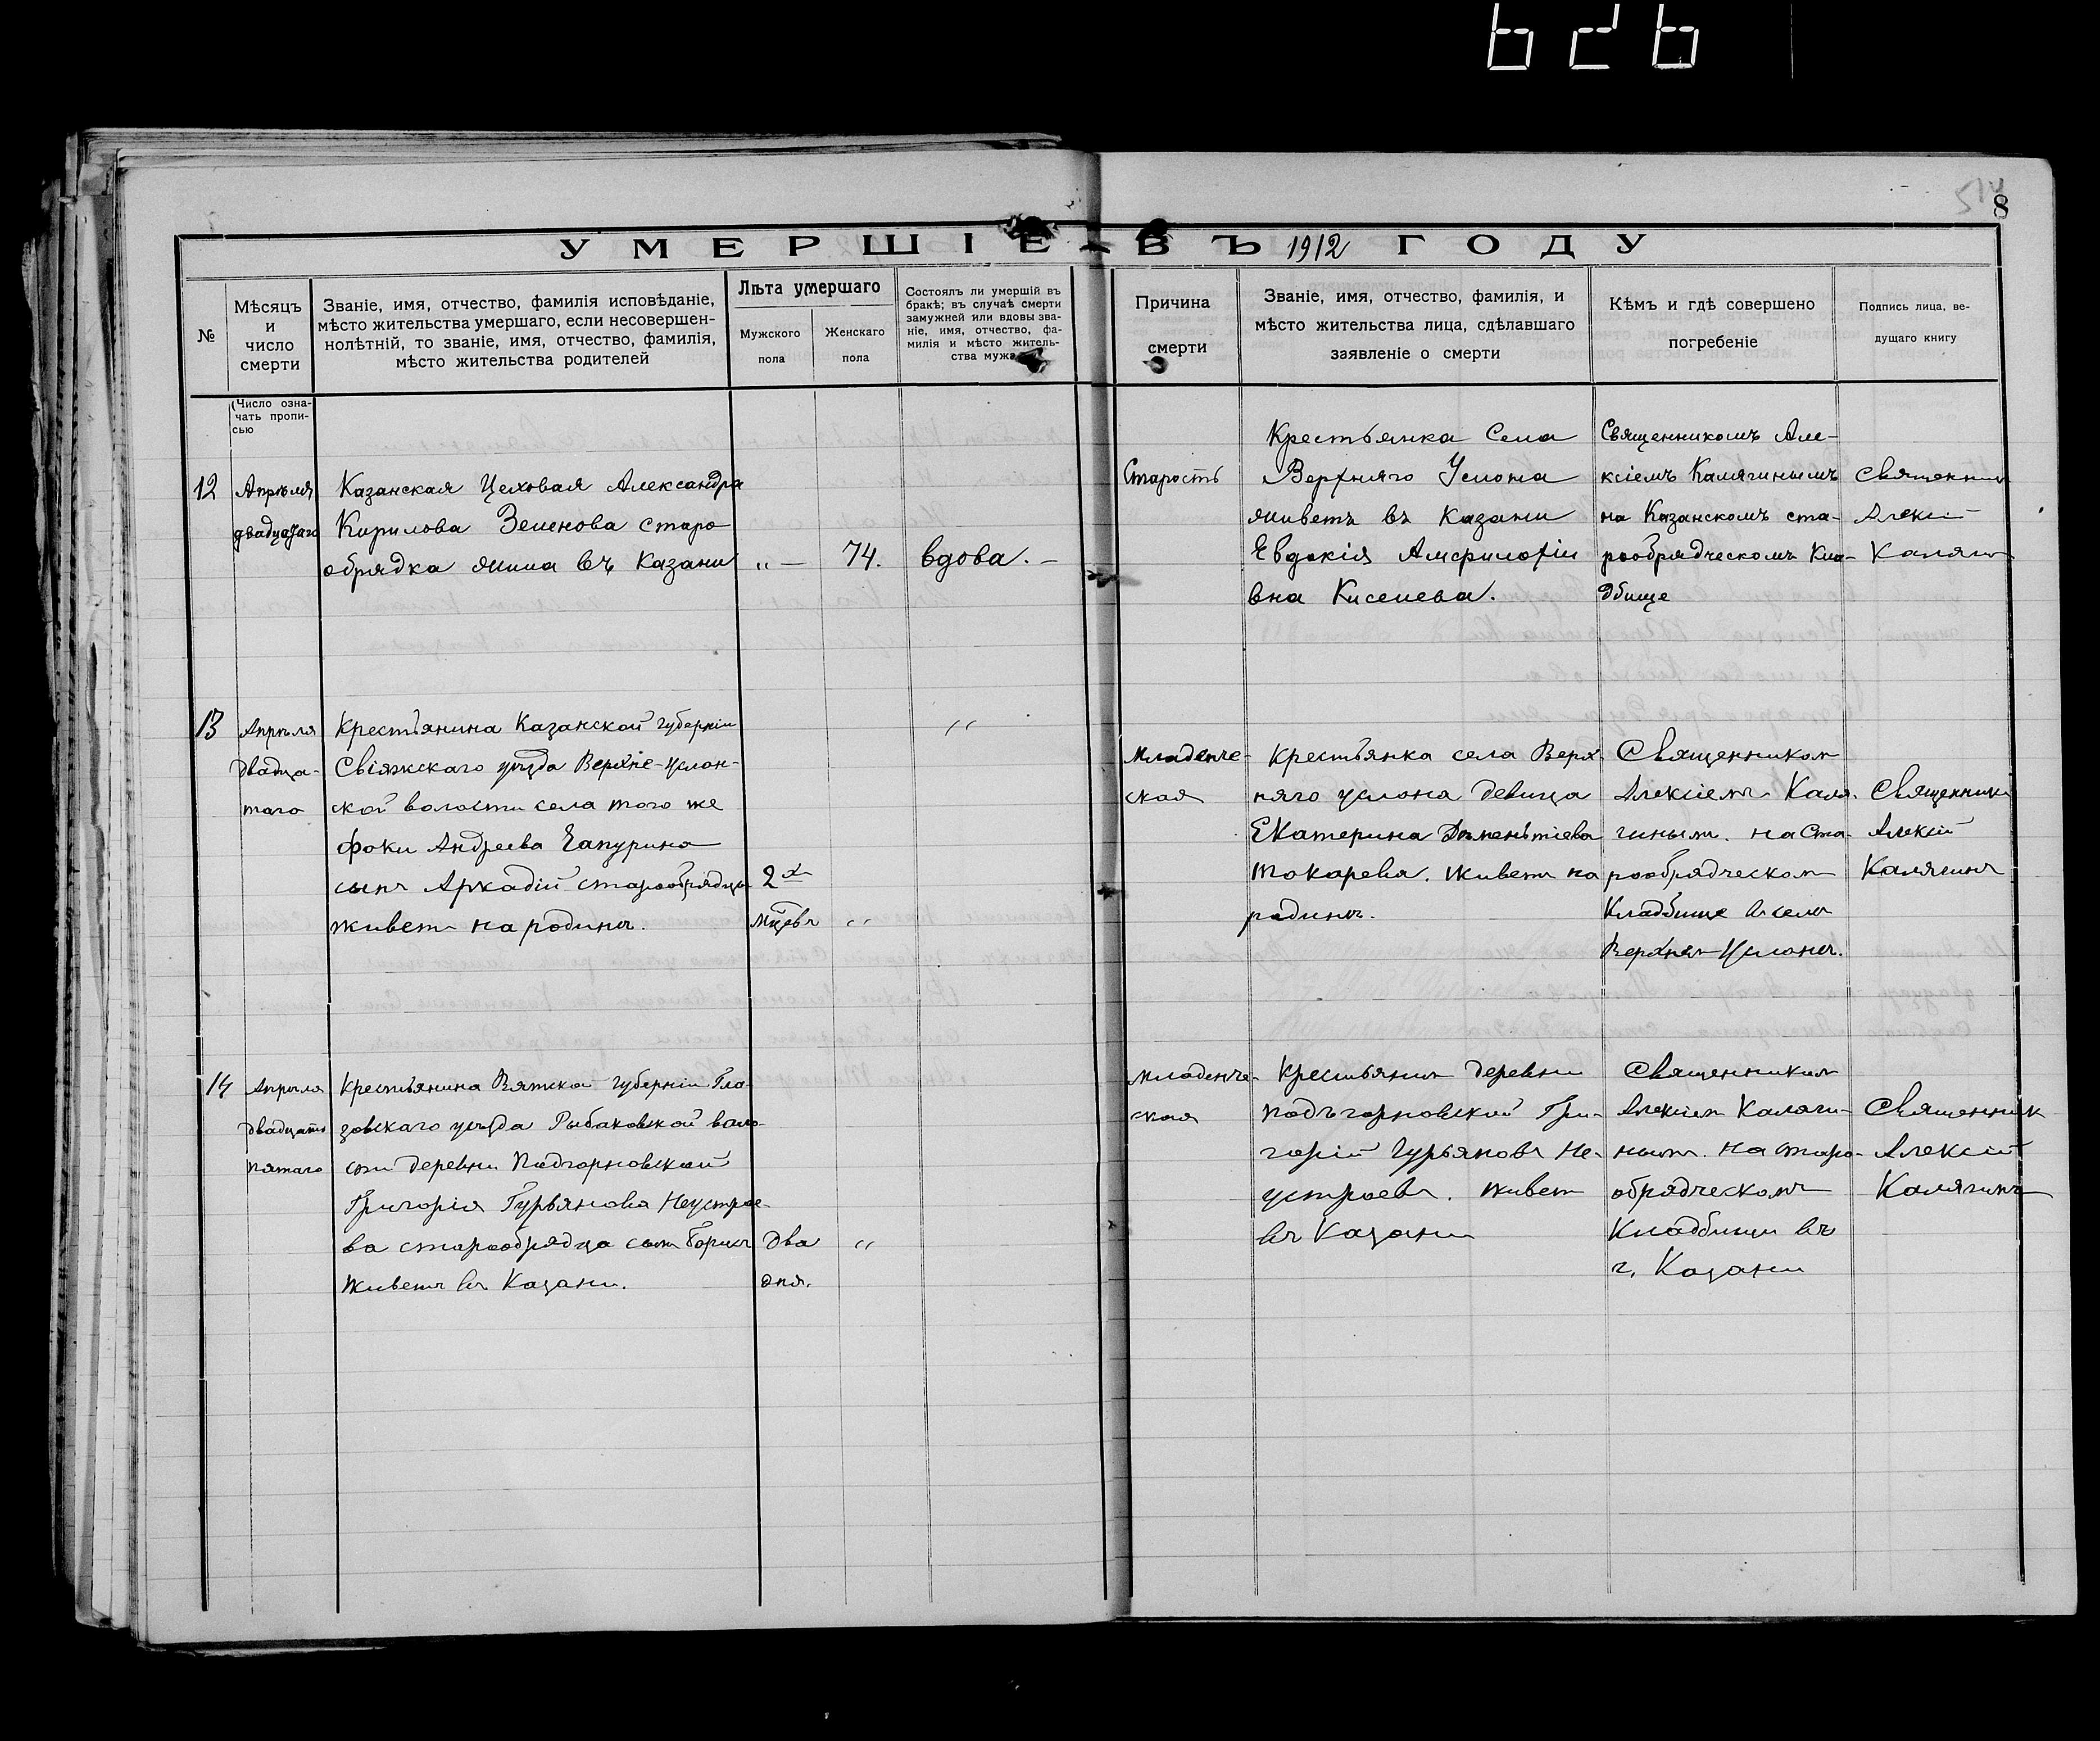 626
8
УМЕРШІЕ ВЪ 1912 ГОДУ
№
Мѣсяцъ
и
число
смерти
Званіе, имя, отчество, фамилія исповѣданіе,
мѣсто жительства умершаго, если несовершен-
нолѣтній, то званіе, имя, отчество, фамилія,
мѣсто жительства родителей
Лѣта умершаго
Мужского
пола
Женскаго
пола
Состоялъ ли умершій въ
бракѣ; въ случаѣ смерти
замужней или вдовы зва-
ніе, имя, отчество, фа-
милія и мѣсто житель-
ства мужа
Причина
смерти
Званіе, имя, отчество, фамилія, и
мѣсто жительства лица, сдѣлавшаго
заявленіе о смерти
Кѣмъ и гдѣ совершено
погребеніе
Подпись лица, ве-
дущаго книгу
(Число озна-
чать пропи-
сью
12
Апрѣля
двадцатаго
Казанская Цеховая Александра
Кирилова Зеленова старо
обрядка жила въ Казани
„ —
74.
вдова. —
Старость
Крестьянка Села
Верхняго Услона
живетъ въ Казани
Евдокія Амфилохіи
вна Киселева.
Священникомъ Але-
ксіемъ Калягинымъ
на Казанскомъ ста-
рообрядческомъ Кла-
дбище
Священник
Алексій
Калягин
13
Апрѣля
двадца-
таго
Крестьянина Казанской губерніи
Свіяжскаго уѣзда Верхне-Услон-
ской волости села того же
Фоки Андреева Чапурина
сынъ Аркадій старообрядцы
живет на родинѣ.
2х
мцевъ
„
„
Младенче-
ская
Крестьянка села Верх
няго Услона девица
Екатерина Дементіева
Токарева. живет на
родинѣ.
Священником
Алексіемъ Каля-
гиным. на Ста-
рообрядческом
Кладбище въ селѣ
Верхнем Услонѣ.
Священникъ
Алексій
Калягинъ
14
Апрѣля
двадцать
пятаго
Крестьянина Вятской губерніи Гла-
зовскаго уѣзда Рыбаковской воло-
сти деревни Подгорновской
Григорія Гурьянова Неустрое-
ва старообрядца сын Борисъ
живетъ въ Казани.
два
дня.
„
младенче-
ская
Крестьянин деревни
подъгорновской Гри-
горій Гурьяновъ Не-
устроевъ. живет
въ Казани
Священником
Алексіем Каляги-
ным. на старо-
обрядческомъ
Кладбищи въ
г. Казани
Священник
Алексій
Калягинъ